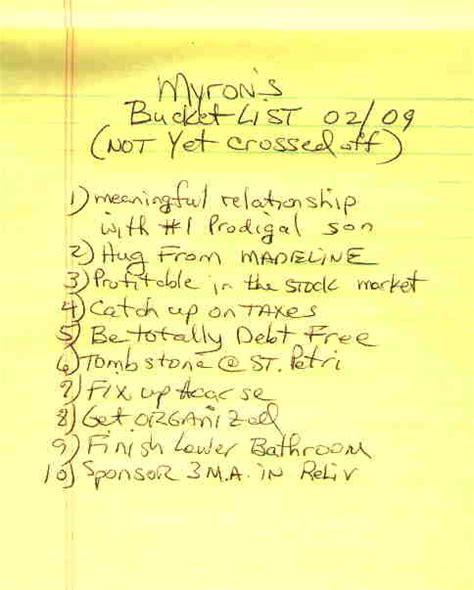 Myron's
Bucket LIST 02/09
(NOT Yet crossed off)
1) meaningful relationship
with #1 Prodigal son
2) Hug From MADELINE
3) Profitable in the stock market
4) Catch up on TAXes
5) Be totally Debt Free
6) Tombstone @ ST. Petri
7) Fix up
8) Get ORGANIZed
9) Finish Lower Bathroom
10) Sponsor 3 M.A. in Reliv